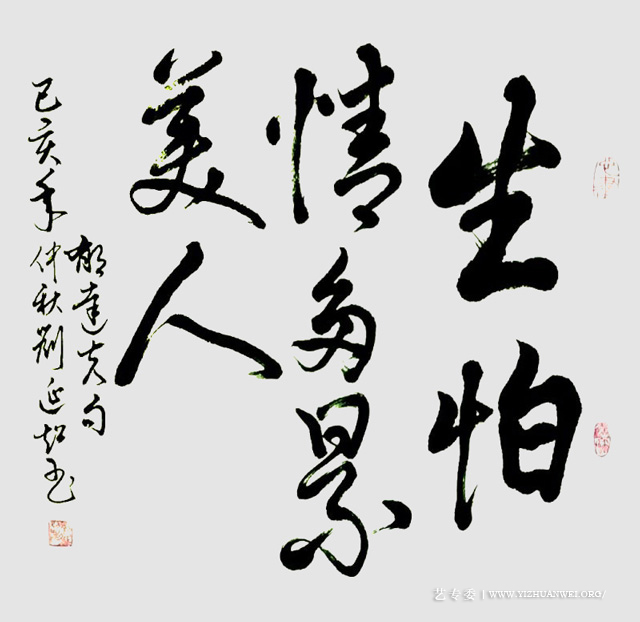 生怕
情多累
美人
郁達夫句
己亥年仲秋劉延超书
艺专委 | WWW.YIZHUANWEI.ORG/